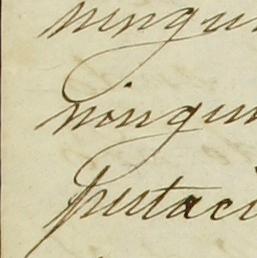 ningun
ningun
putaci